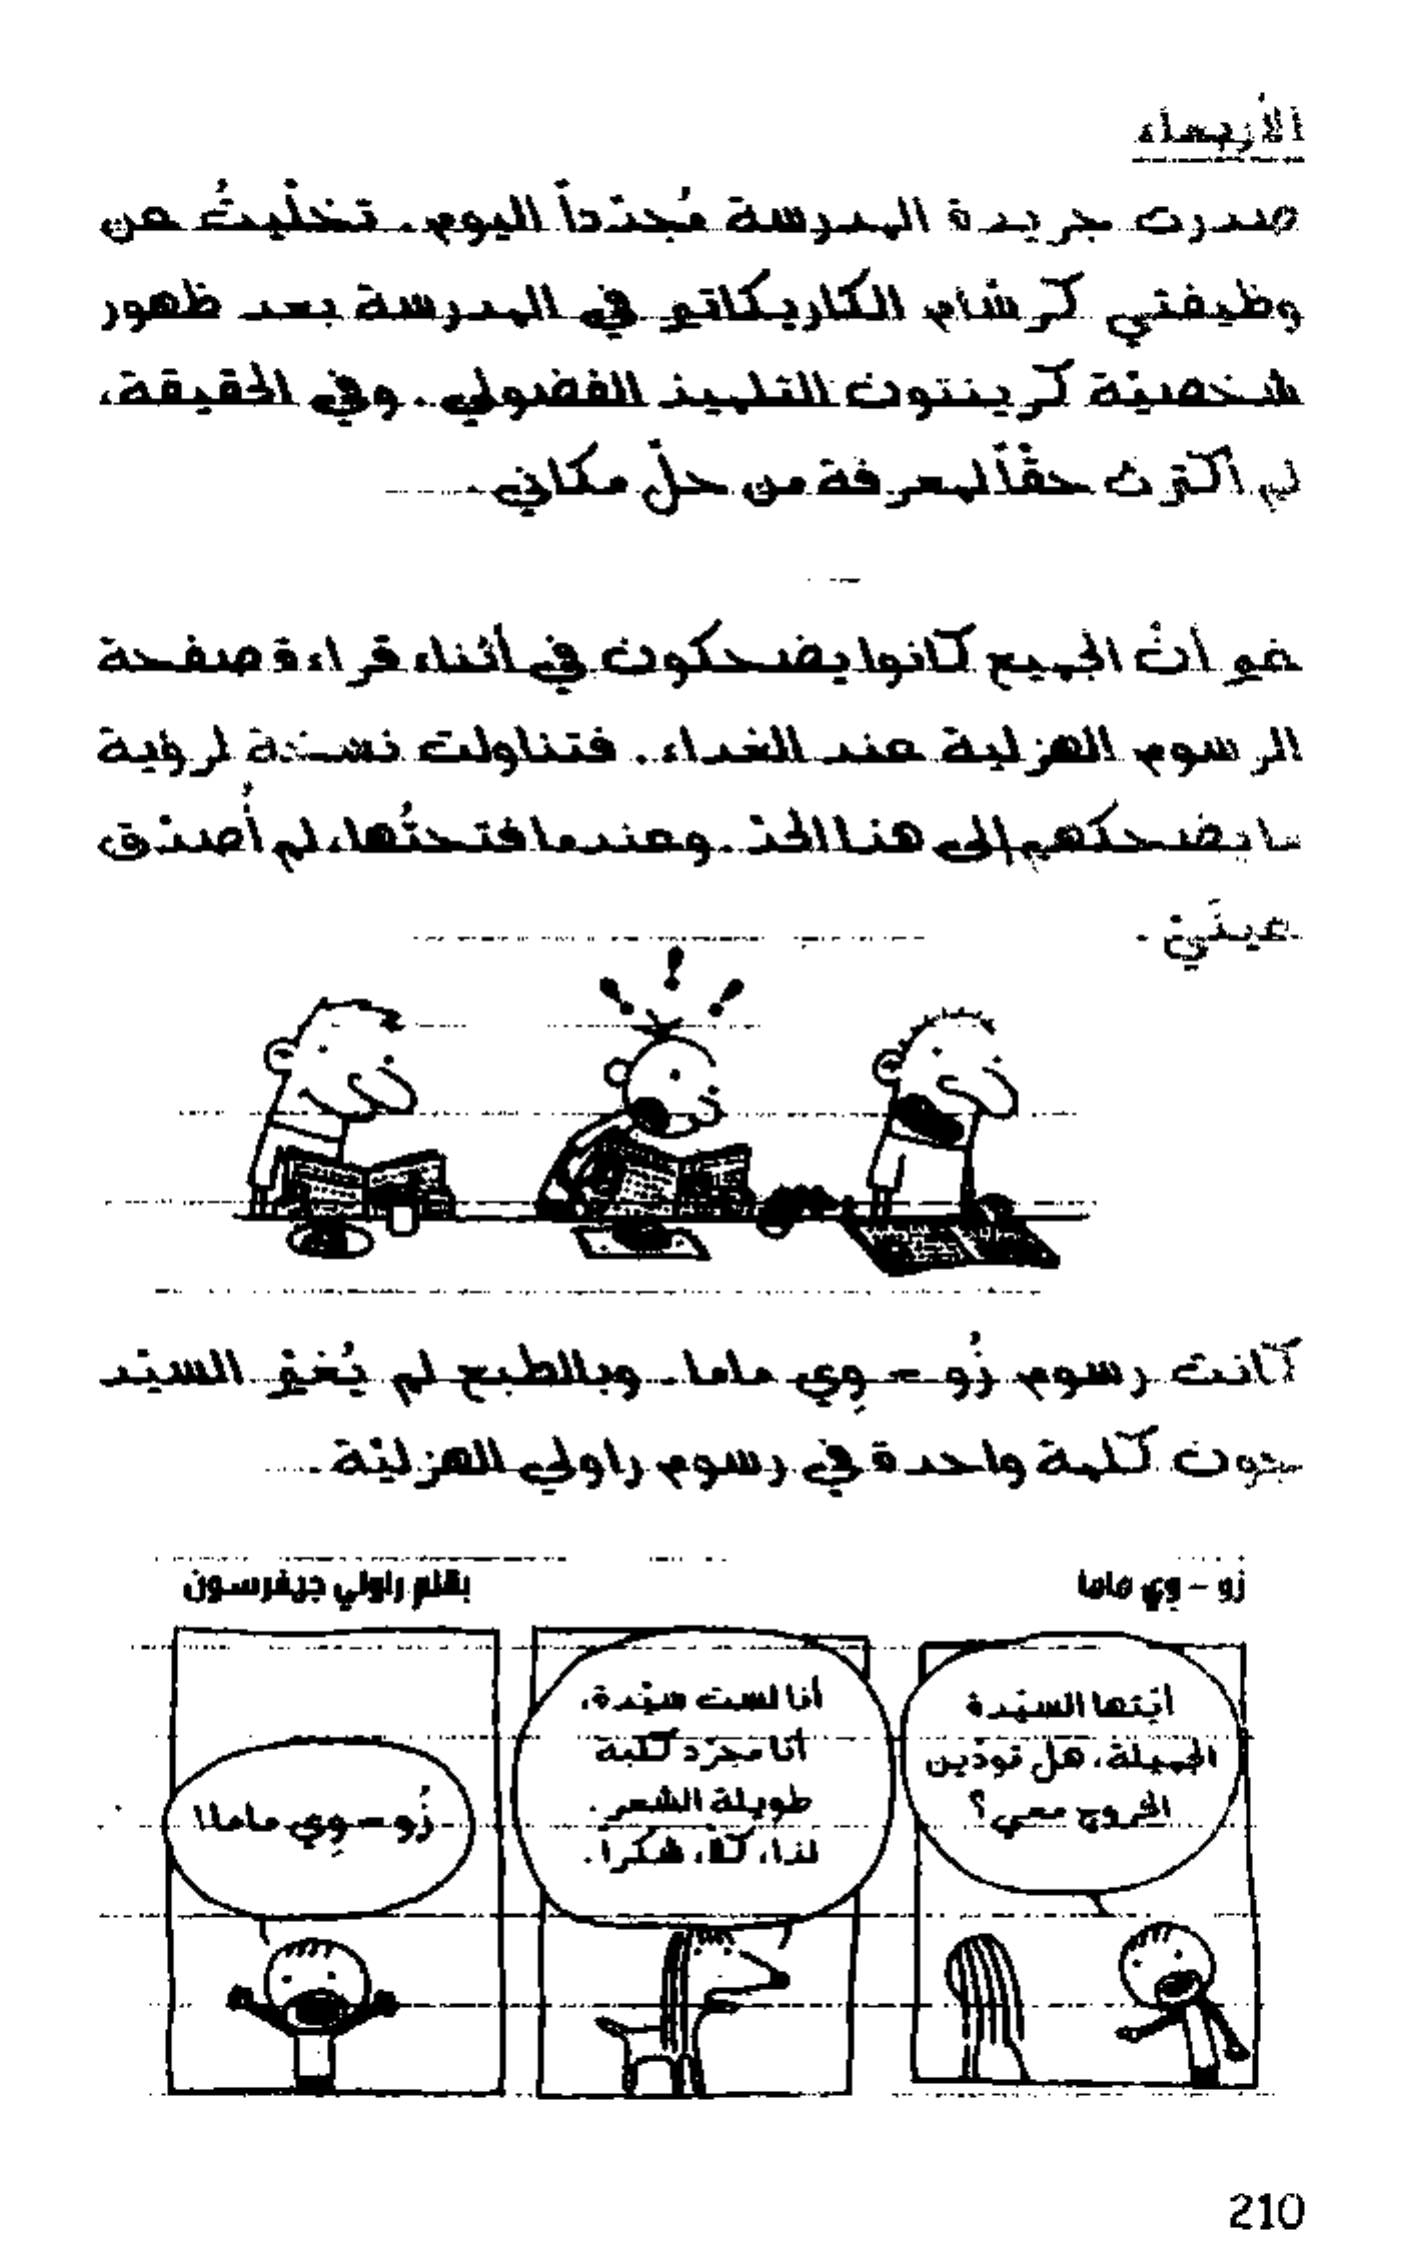 الأربعاء
صدرت جريدة المدرسة مُجدّداً اليوم. تخلّيتُ عن
وظيفتي كرسّام الكاريكاتير في المدرسة بعد ظهور
شخصيّة كرينتون التلميذ الفضولي. وفي الحقيقة،
لم أكترث حقّاً لمعرفة من حلّ مكاني.
غير أنّ الجميع كانوا يضحكون في أثناء قراءة صفحة
الرسوم الهزلية عند الغداء. فتناولت نسخة لرؤية
ما يضحكهم إلى هذا الحدّ. وعندما فتحتُها، لم أُصدّق
عينَيّ.
كانت رسوم زُو - وِي ماما. وبالطبع لم يُغيّر السيّد
جون كلمة واحدة في رسوم راولي الهزليّة.
زو - وِي ماما
بقلم راولي جيفرسون
أيّتها السيّدة
الجميلة، هل تودّين
الخروج معي؟
أنا لست سيّدة،
أنا مجرّد كلبة
طويلة الشعر.
لذا، كلّا، شكراً.
زُو - وِي ماما!!
210